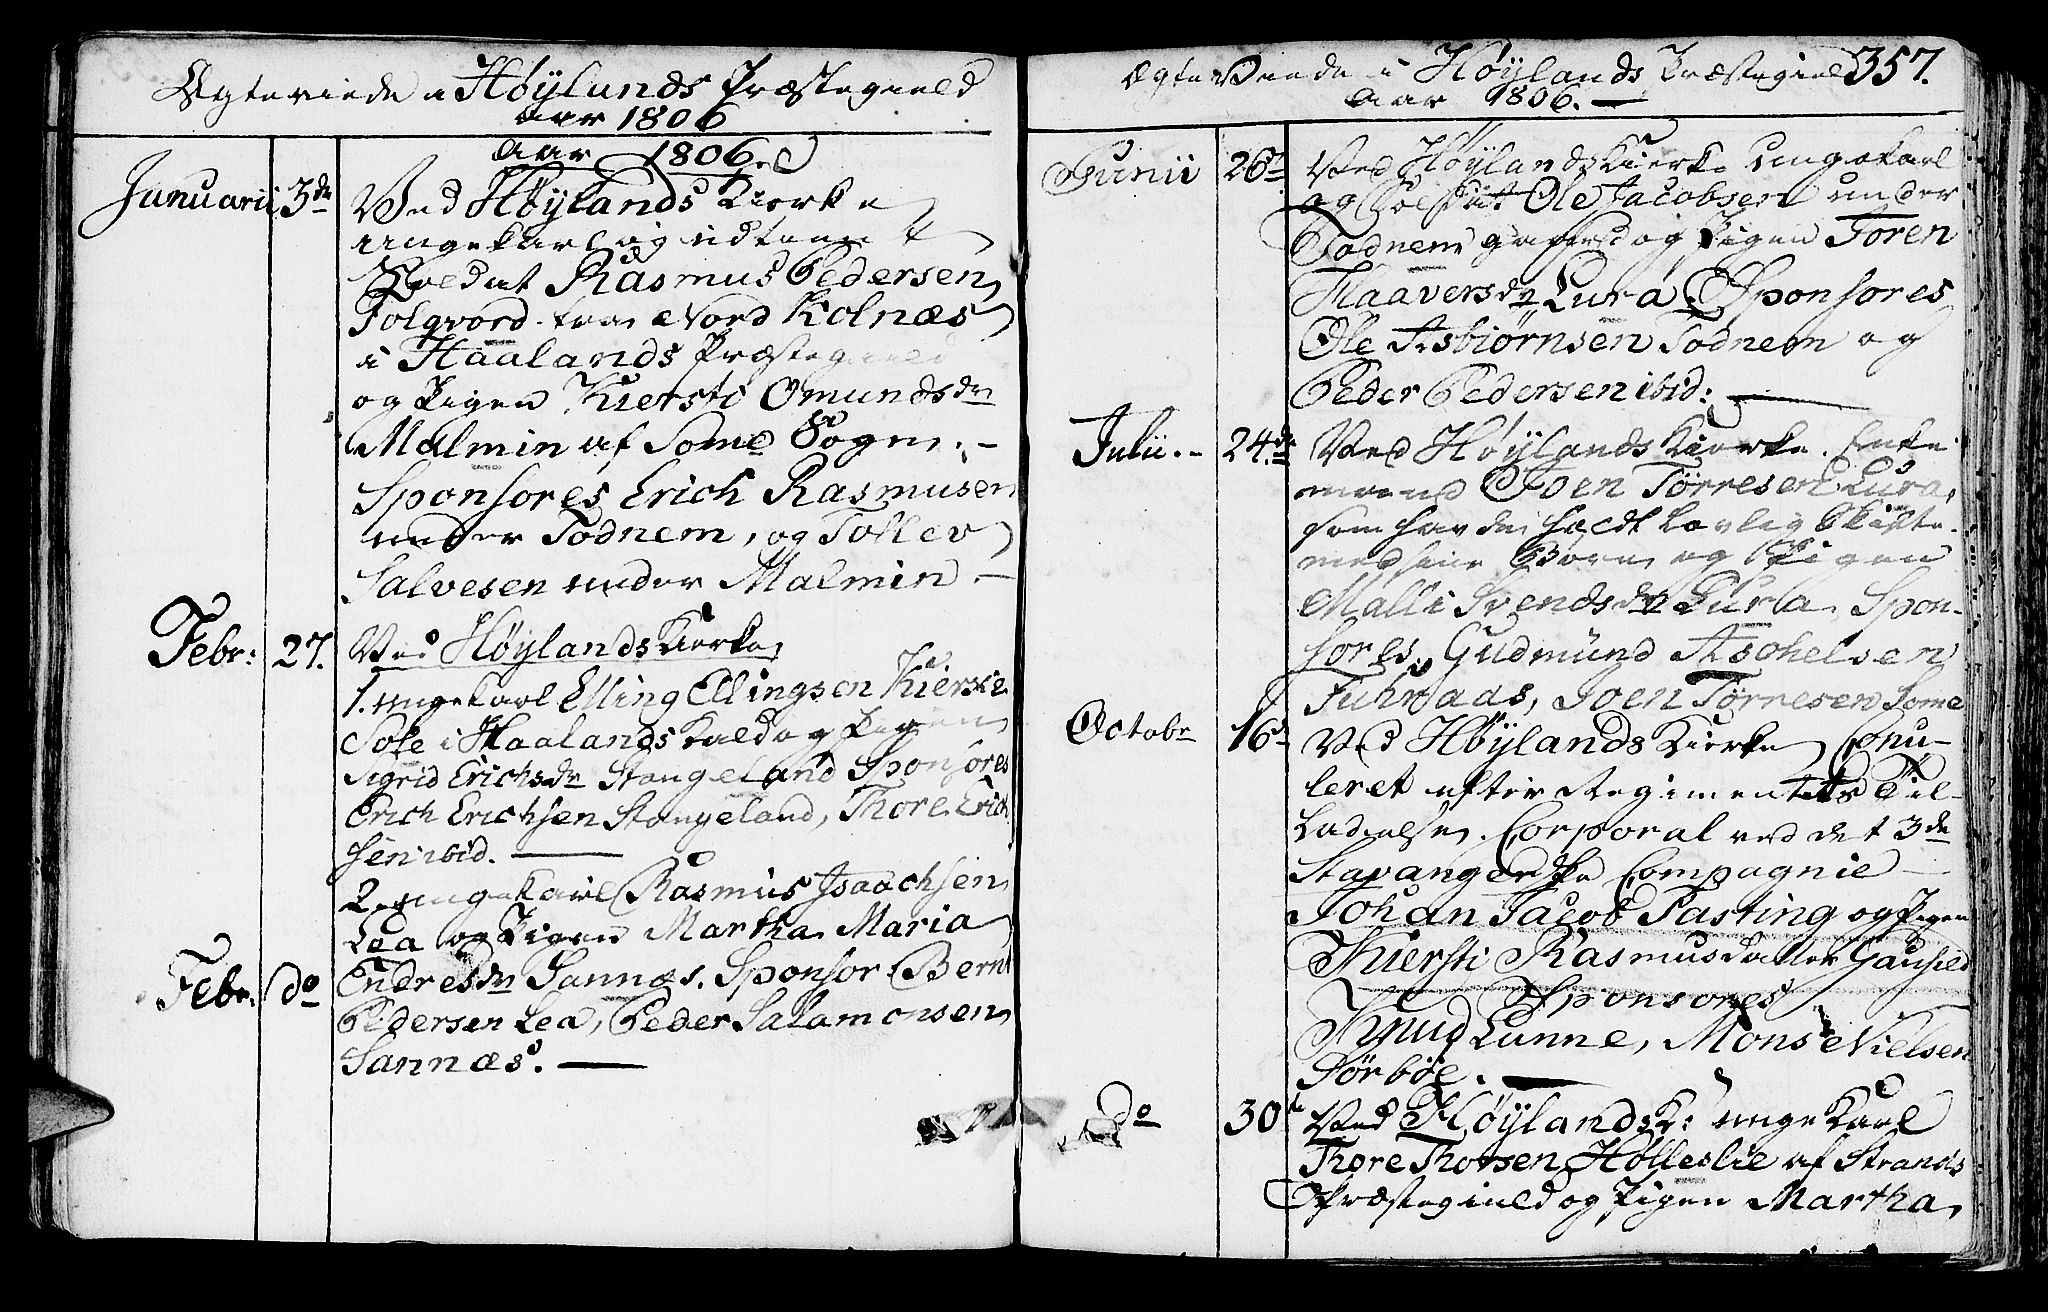 Ægteviede i Høylands Præstegield
Aar 1806
Aar 1806
Januarii 3de Ved Høylands Kierke
ungekarl og udtient
Soldat Rasmus Pedersen
Folqvord fra Nord Kolnæs
i Haalands Præstegield
og Pigen Kiersti Omundsdr
Malmin af Some Sogn. -
Sponsores Erich Rasmusen
under Todnem, og Tollev
Salvesen under Malmin -
Febr: 27. Ved Høylands Kierke
1. ungekarl Elling Ellingsen
Sole i Haalands Kald og Pigen
Sigrid Erichsdr Stangeland Sponsores
Erich Erichsen Stangeland, Thore Erich
sen ibid.
2. ungekarl Rasmus Isaachsen
Lea og Pigen Martha Maria
Febr. do Endresdr Sannæs. Sponsor Bernt
Pedersen Lea, Peder Salamonsen
Sannæs.
Ægteviede i Høylands Præstegield 357.
Aar 1806. -
Junii 26de Ved Høylands Kierke ungekarl
og Soldat Ole Jacobsen under
Todnem og Pigen Toren
Haaversdr Lura. Sponsores
Ole Asbiørnsen Todnem og
Peder Pedersen ibid:
Julii. - 24de Ved Høylands Kierke. Enke
mand Joen Tørresen Lura,
som havde holdt lovlig Skifte
med sine Børn og Pigen
Malli Svendsdr Lura. Spon-
sores, Gudmund Aschelsen
Fuhraas, Joen Tørresen Some
Octobr 16de Ved Høylands Kierke Copu-
leret efter Regimentets Til-
ladelse. Corporal ved det 3de
Stavangerske Compagnie -
Johan Jacob Pasting og Pigen
Kiersti Rasmusdatter Gausel
Sponsores
Knud Lunne, Mons Nielsen
Sørbøe.
do 30t Ved Høylands K: ungekarl
Thore Thorsen Hølleslie af Strands
Præstegield og Pigen Martha